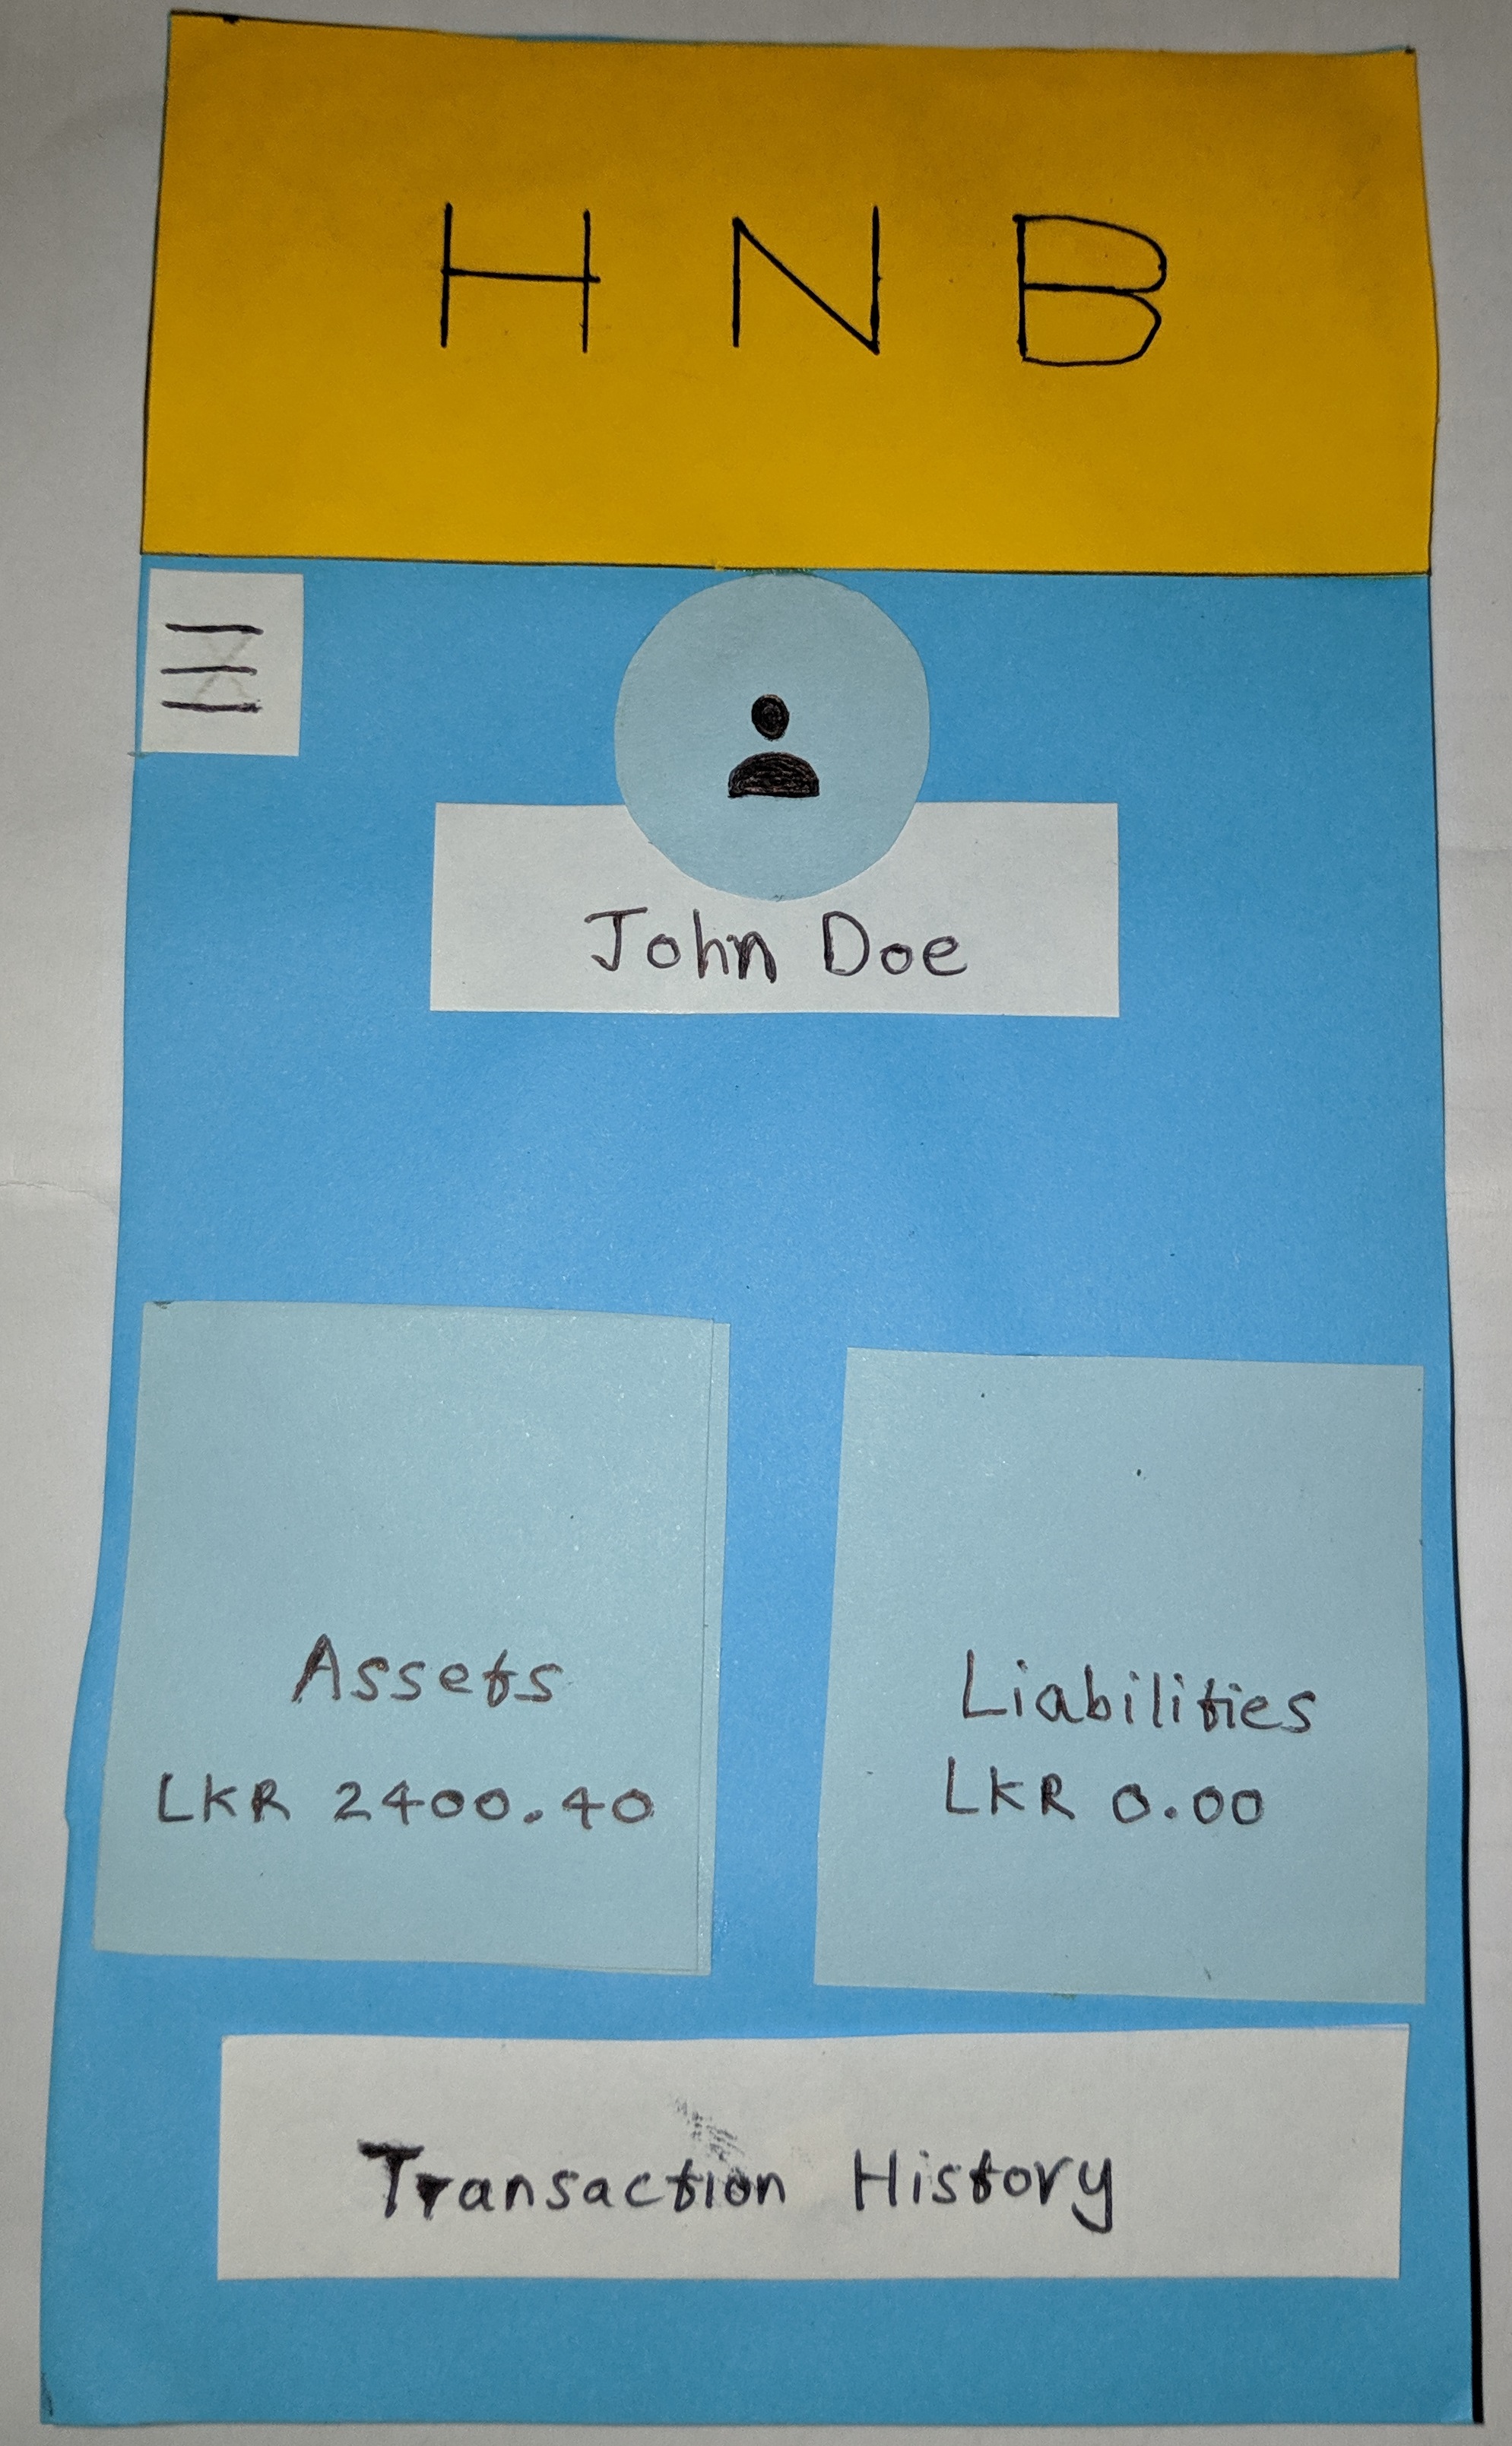 H N B
John Doe
Assets
LKR 2400.40
Liabilities
LKR 0.00
Transaction History